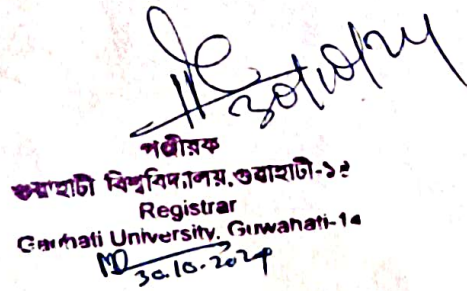 ৩০/১০/২৪
পঞ্জীয়ক
গুৱাহাটী বিশ্ববিদ্যালয়,গুৱাহাটী-১৪
Registrar
Gauhati University, Guwahati-14
30.10.2024